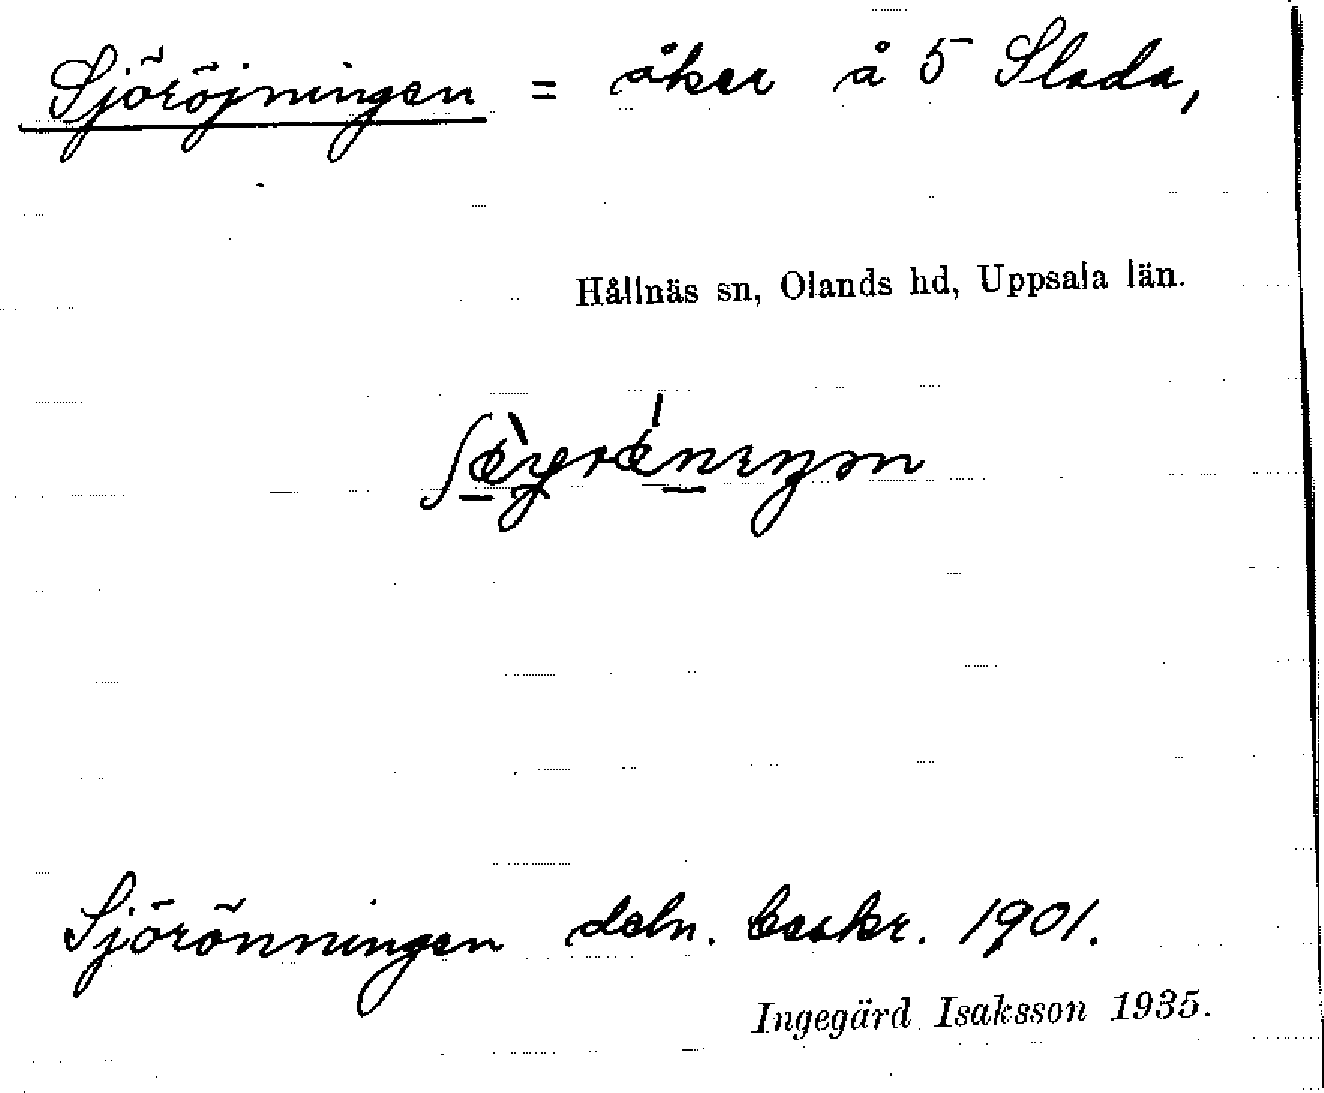 Sjöröjningen = åker å 5 Slada,
Hållnäs sn, Olands hd, Uppsala län.
Sjörönningen deln. beskr. 1901.
Ingegärd Isaksson 1935.